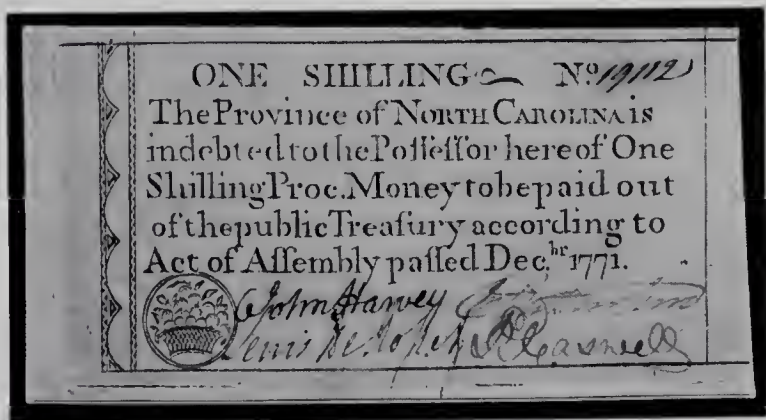 ONE SHILLING Nº 19112
The Province of NORTH CAROLINA is
indebted to the Poſſeſſor hereof One
Shilling Proc. Money to be paid out
of the public Treaſury according to
Act of Aſſembly paſſed Dec.hr 1771.
John Harvey
Lewis De Roſſet R Caswell